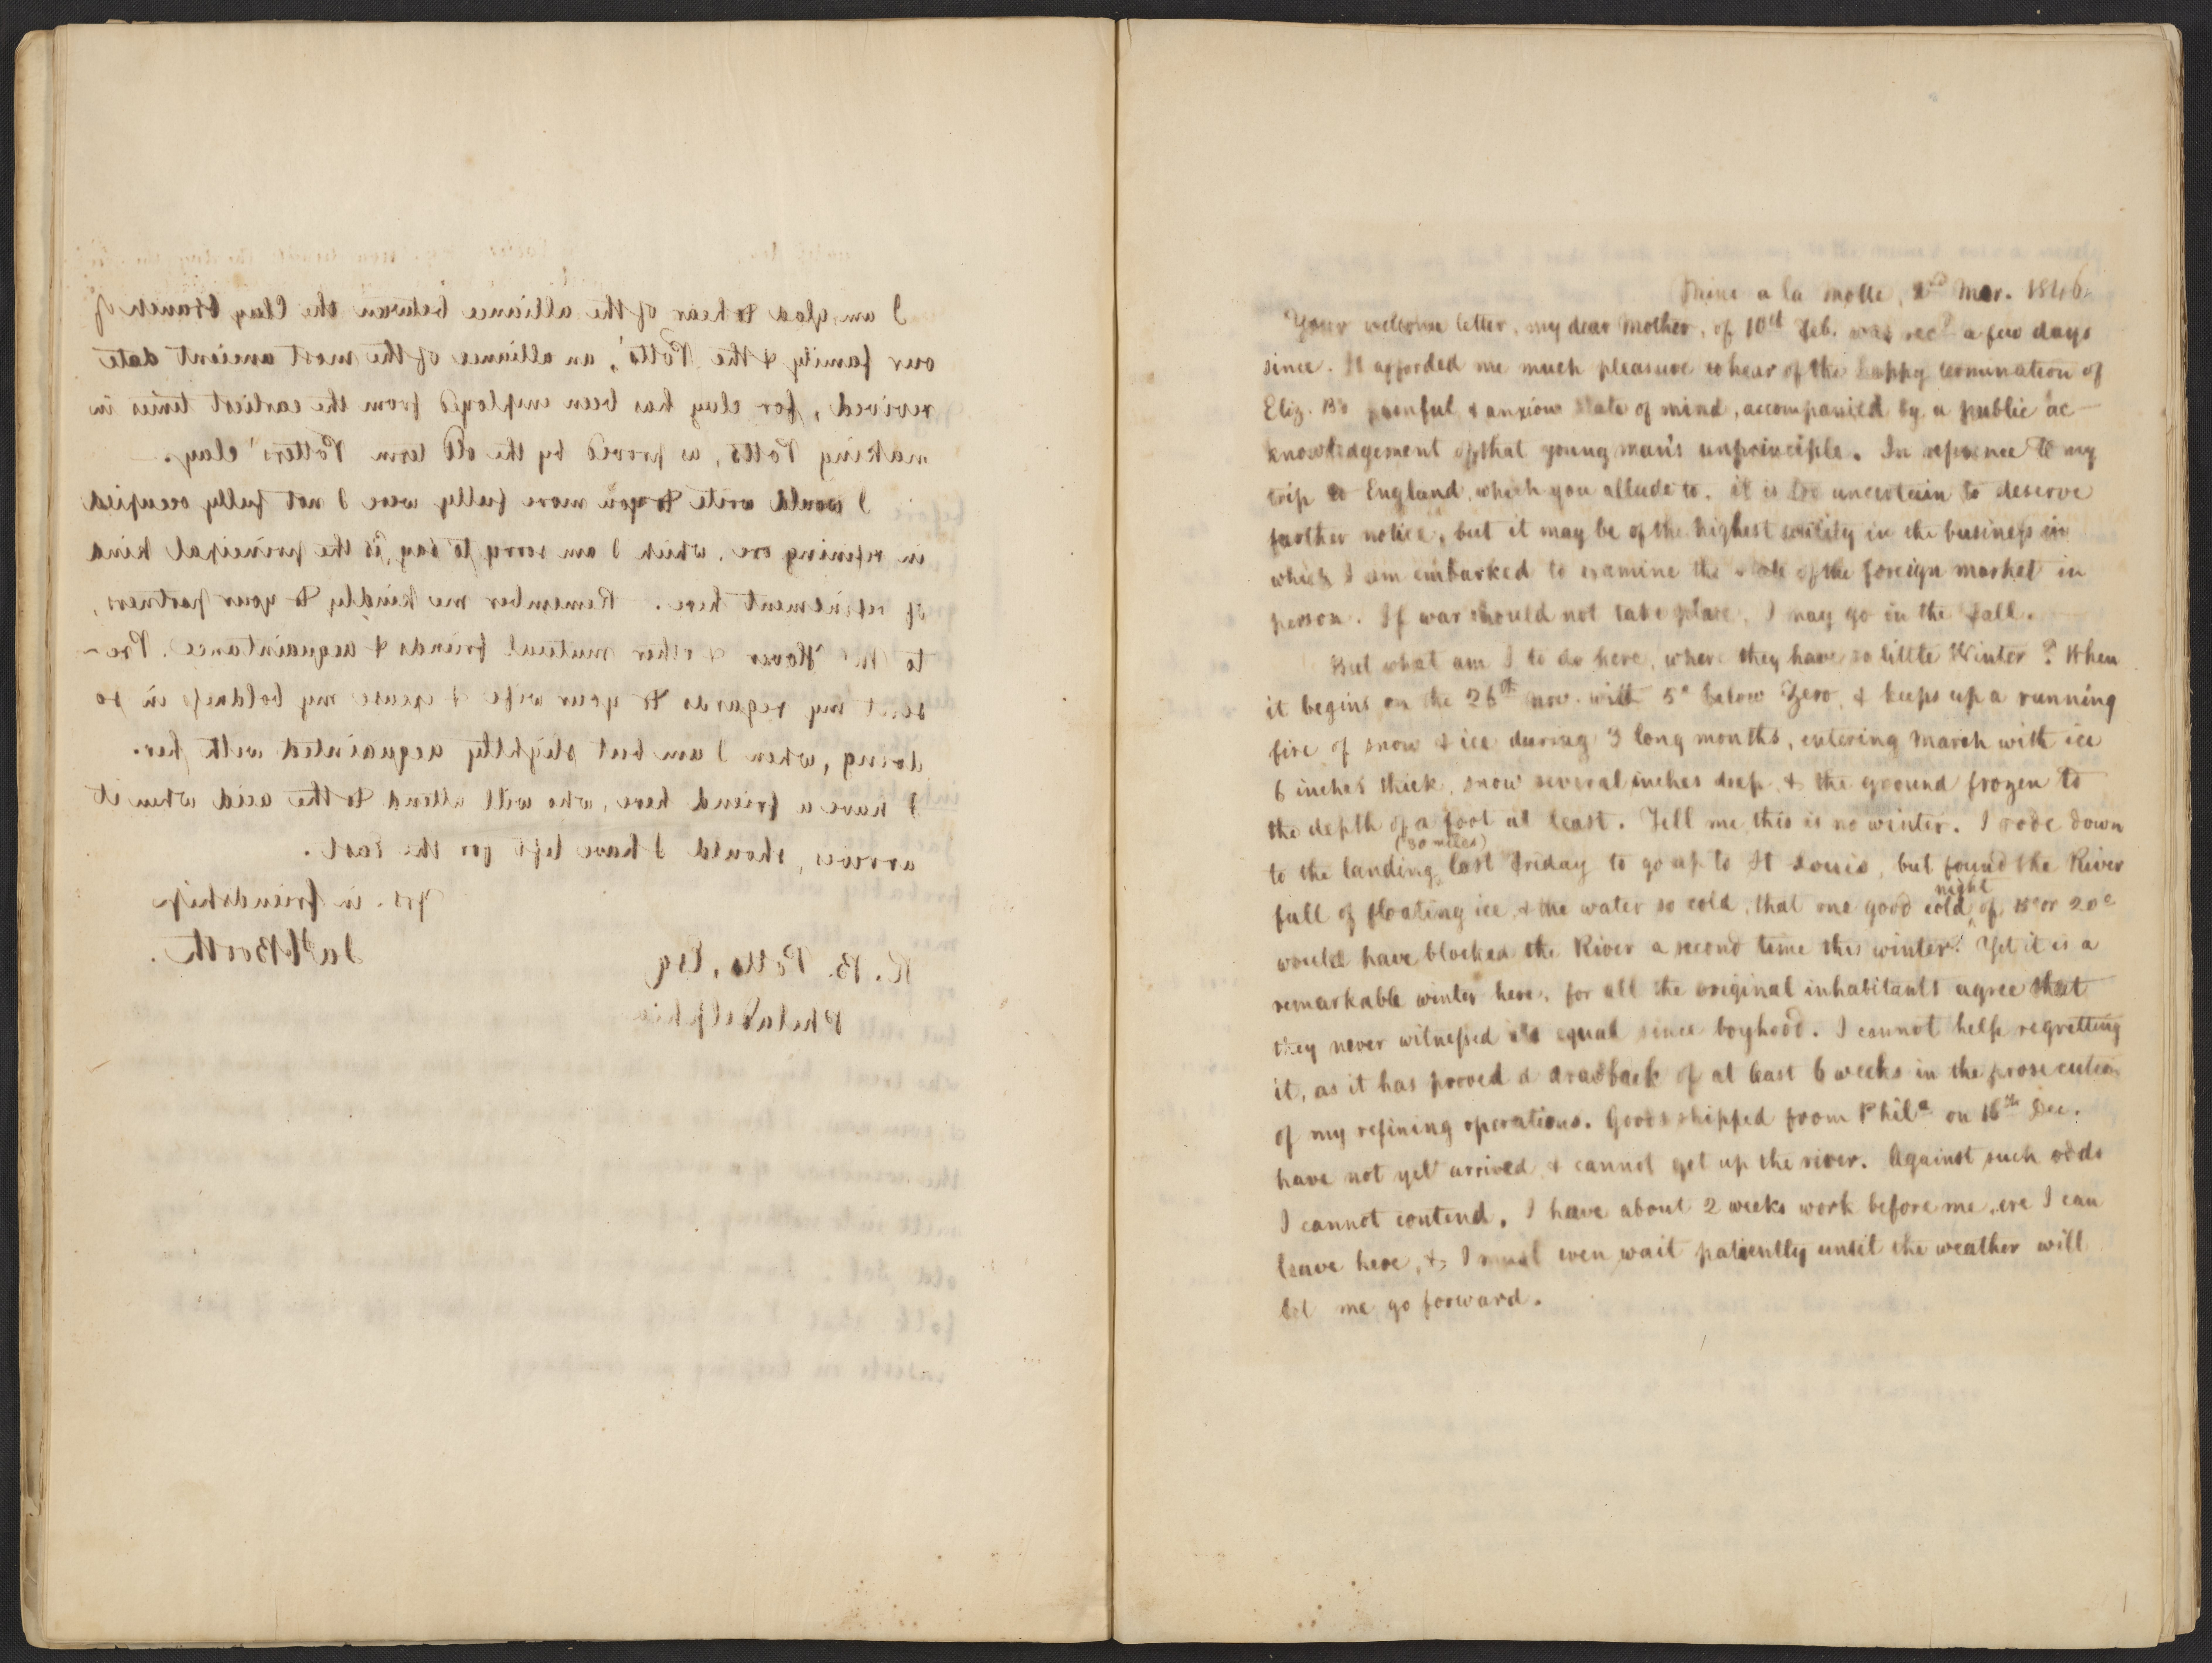 I am glad to hear of the alliance between the Clay branch of
our family & the Potts', an alliance of the most ancient date
revived, for clay has been employed from the earliest times in
making Potts, as proved by the old term Potters' clay.
I would write to you more fully were I not fully occupied
in refining ore, which I am sorry to say, is the principal kind
of refinement here. Remember me kindly to your partners,
to & other mutual friends & acquaintance. Pre-
sent my regards to your wife & excuse my boldness in so
doing, when I am but slightly acquainted with her.
I have a friend here, who will attend to the acid when it
arrives, should I have left for the east.
Yrs. in friendship
Jas Booth.
R. B. Potts, Esq
Philadelphia
Mine a la Motte, 2nd Mar. 1846.
Your welcome letter, my dear Mother, of 10th Feb. was recd a few days
since. It afforded me much pleasure to hear of the happy termination of
Eliz. B's painful & anxious state of mind, accompanied by a public ac-
knowledgement of that young man's unprinciple. In reference to my
trip to England, which you allude to, it is too uncertain to deserve
further notice, but it may be of the highest utility in the business in
which I am embarked to examine the state of the foreign market in
person. If war should not take place, I may go in the Fall.
But what am I to do here, where they have so little Winter? When
it begins on the 26th Nov. with 5° below Zero, & keeps up a running
fire of snow & ice during 3 long months, entering March with ice
6 inches thick, snow several inches deep, & the ground frozen to
the depth of a foot at least. Tell me this is no winter. I rode down
to the landing (30 miles) last Friday to go up to St Louis, but found the River
full of floating ice, & the water so cold, that one good cold night of 15° or 20°
would have blocked the River a second time this winter. Yet it is a
remarkable winter here, for all the original inhabitants agree that
they never witnessed its equal since boyhood. I cannot help regretting
it, as it has proved a drawback of at least 6 weeks in the prosecution
of my refining operations. Goods shipped from Phila on 16th Dec.
have not yet arrived & cannot get up the river. Against such odds
I cannot contend. I have about 2 weeks work before me, ere I can
leave here, & I must even wait patiently until the weather will
let me go forward.